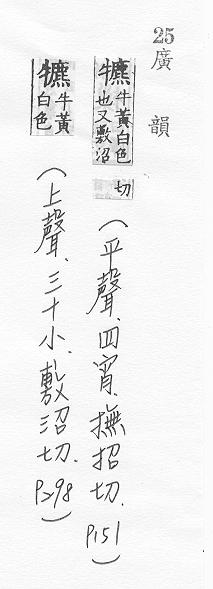 25廣韻
犥牛黃白色也又敷沼切(平聲、四宵、撫招切、P151)
犥牛黃白色(上聲、三十小、敷沼切、P298)